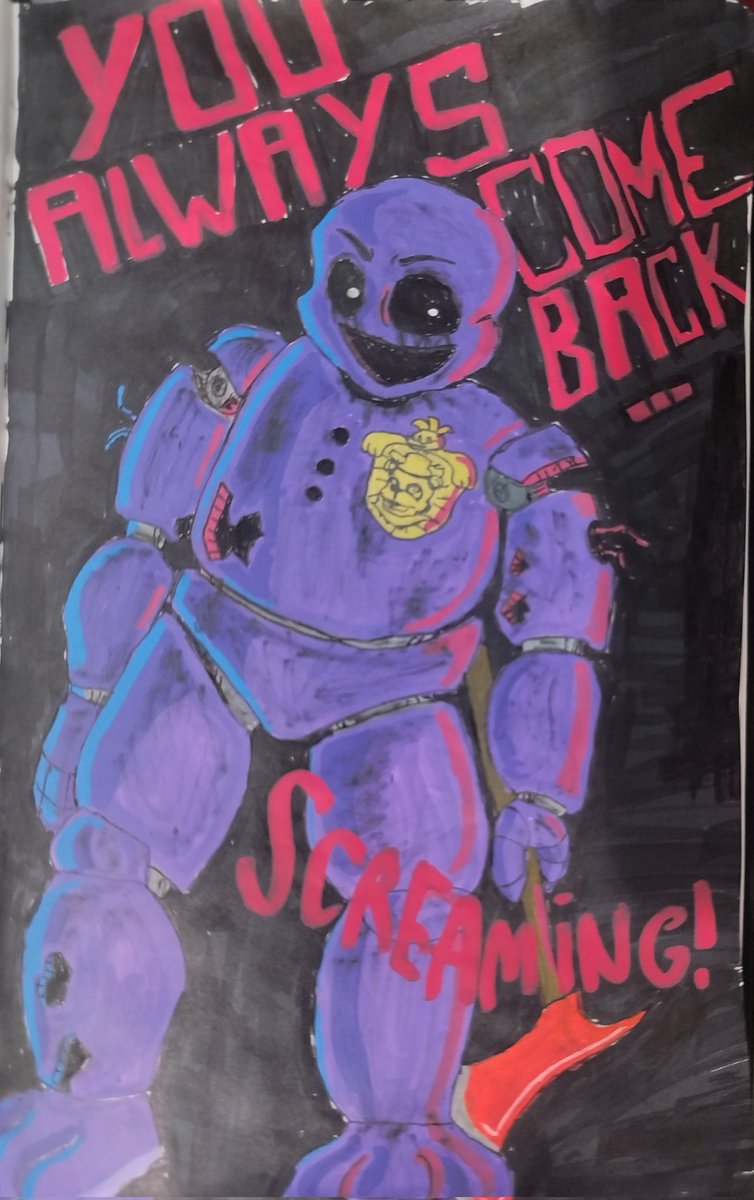 YOU
ALWAYS
COME
BACK
...
SCREAMING!